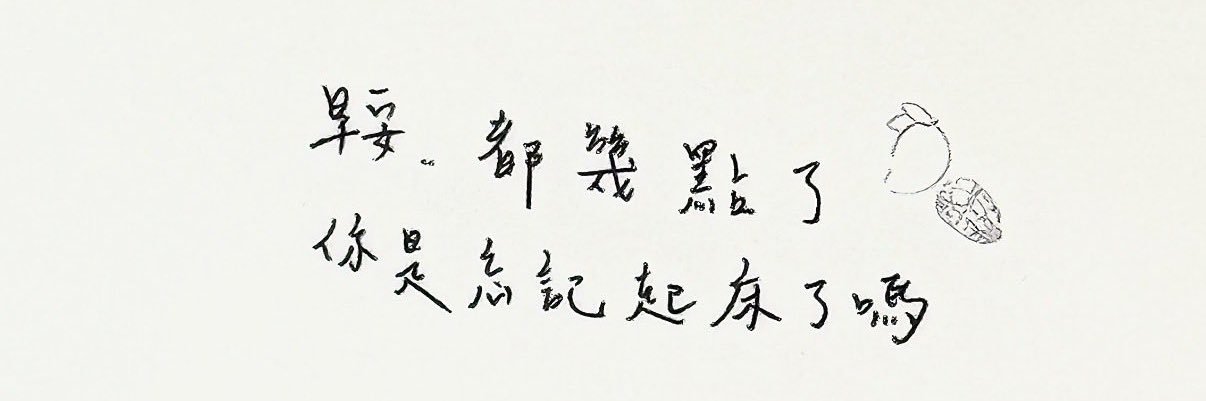 早安。都幾點了
你是忘記起床了嗎